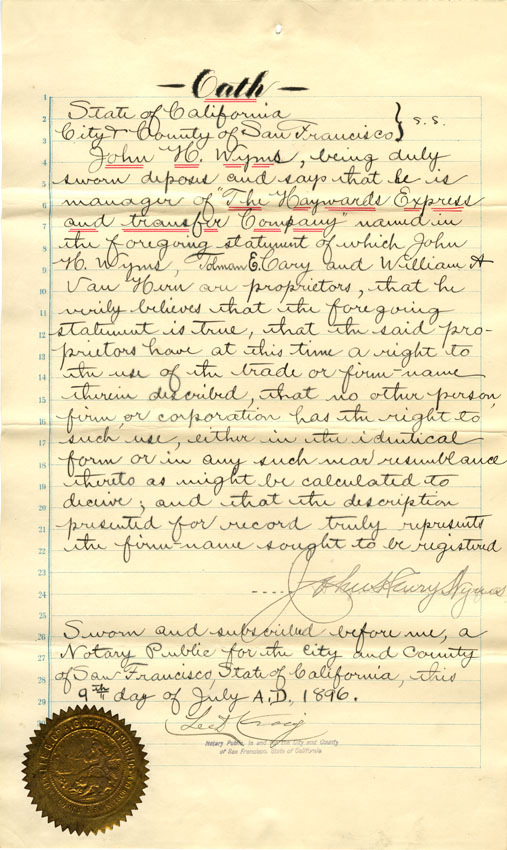 — Oath —
1
2
3
4
5
6
7
8
9
10
11
12
13
14
15
16
17
18
19
20
21
22
23
24
25
26
27
28
29
State of California
City & County of San Francisco } s.s.
John H. Wyms, being duly
sworn deposes and says that he is
manager of "The Haywards Express
and transfer Company" named in
the foregoing statement of which John
H. Wyms, E. Cary and William A
Van Hirn are proprietors, that he
verily believes that the foregoing
statement is true, that the said pro-
prietors have at this time a right to
the use of the trade or firm-name
therein described, that no other person,
firm, or corporation has the right to
such use, either in the identical
form or in any such near resemblance
thereto as might be calculated to
deceive; and that the description
presented for record truly represents
the firm-name sought to be registered
John Henry Wyms
Sworn and subscribed before me, a
Notary Public for the City and County
of San Francisco, State of California, this
9th day of July A.D. 1896.
Lee D. Craig
Notary Public, in and for the City and County
of San Francisco, State of California